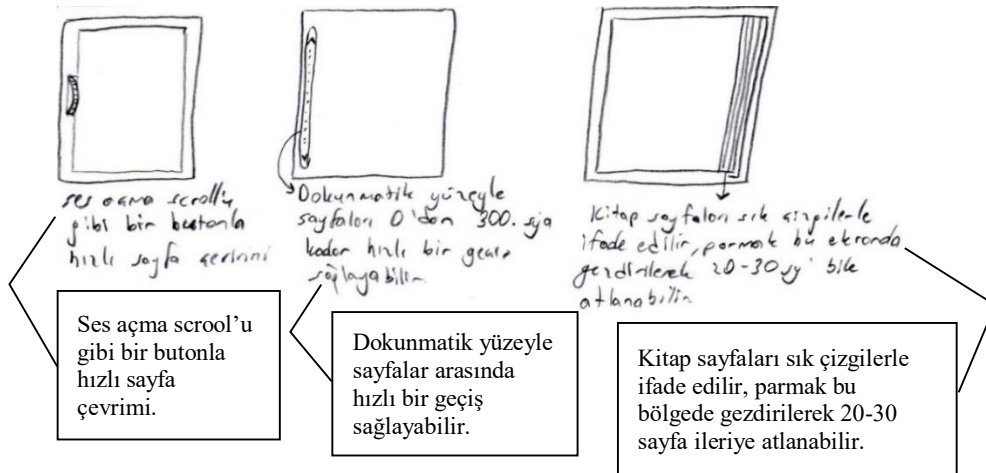 ses açma scroll'u
gibi bir butonla
hızlı sayfa çevirimi
Dokunmatik yüzeyle
sayfaları 0'dan 300. sya
kadar hızlı bir geçiş
sağlayabilir
Kitap sayfaları sık çizgilerle
ifade edilir, parmak bu ekranda
gezdirilerek 20-30 sy' bile
atlanabilir
Ses açma scrool’u
gibi bir butonla
hızlı sayfa
çevrimi.
Dokunmatik yüzeyle
sayfalar arasında
hızlı bir geçiş
sağlayabilir.
Kitap sayfaları sık çizgilerle
ifade edilir, parmak bu
bölgede gezdirilerek 20-30
sayfa ileriye atlanabilir.